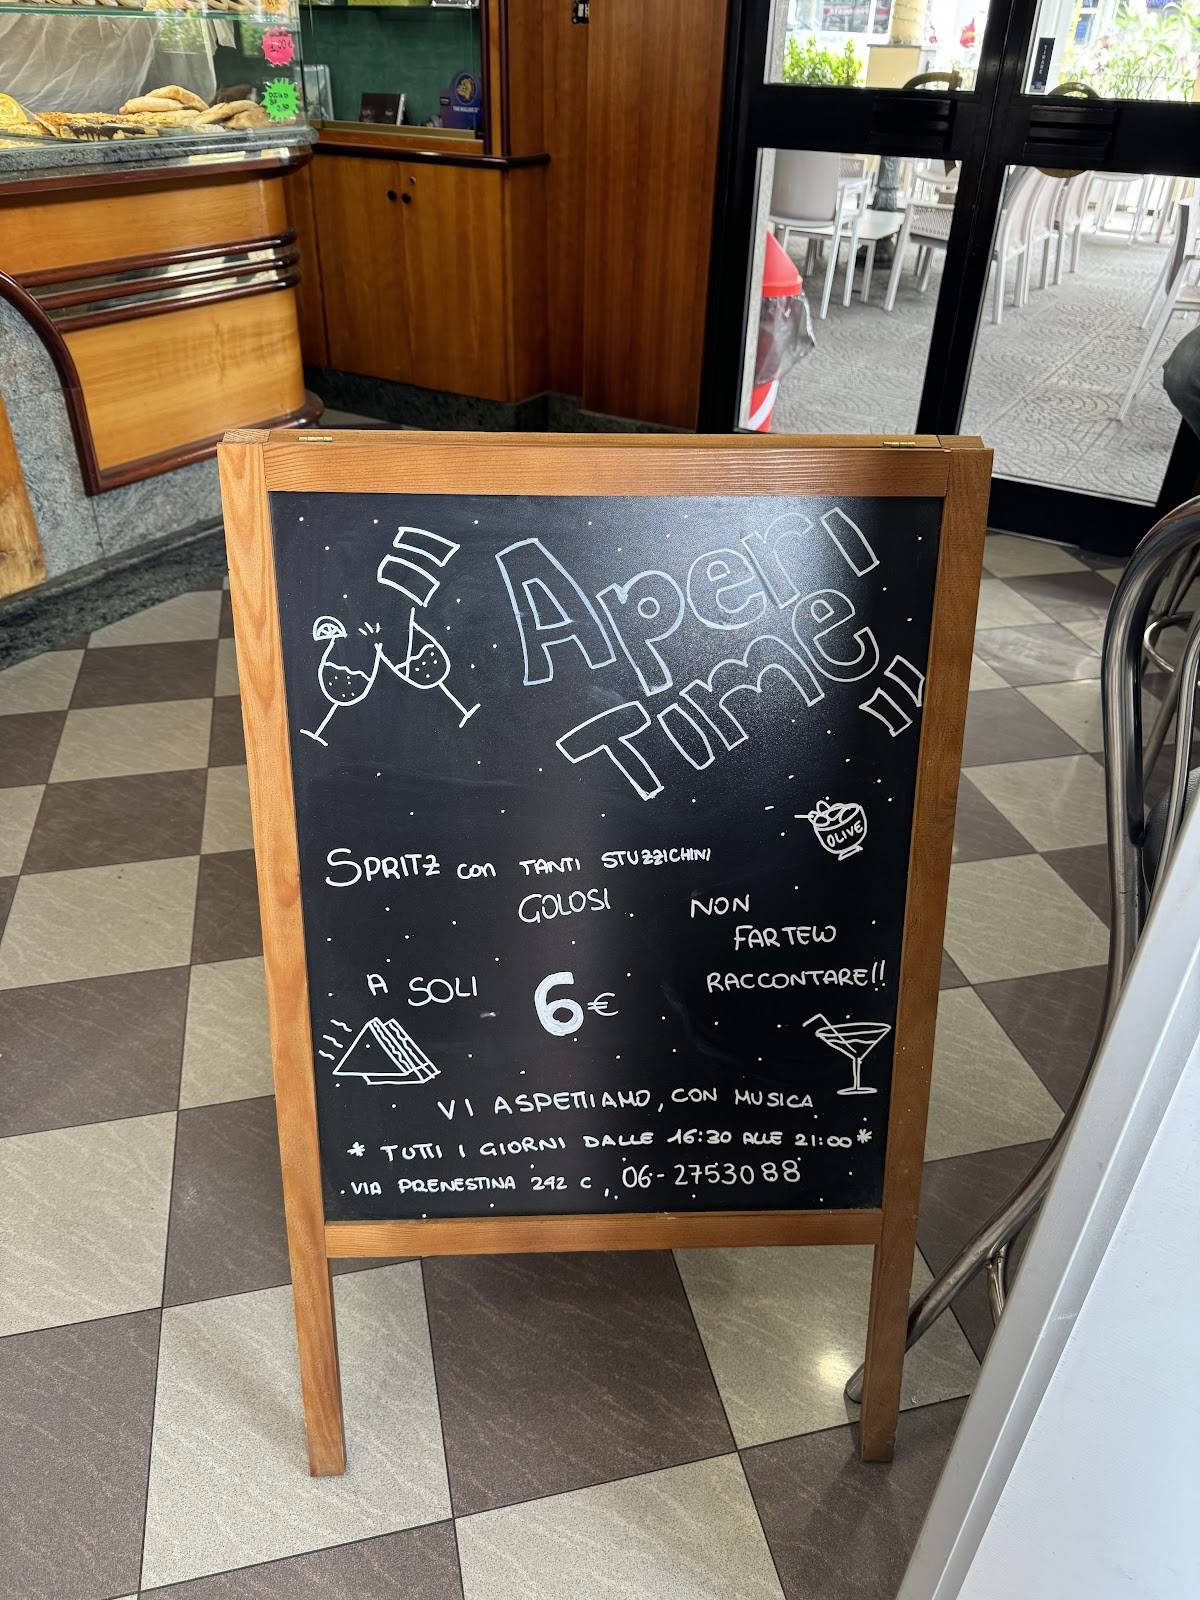 Aperi
Time
OLIVE
SPRITZ con TANTI STUZZICHINI
GOLOSI
NON
FARTELO
RACCONTARE!!
A SOLI 6€
VI ASPETTIAMO, CON MUSICA
* TUTTI I GIORNI DALLE 16:30 ALLE 21:00 *
VIA PRENESTINA 242 C, 06-2753088